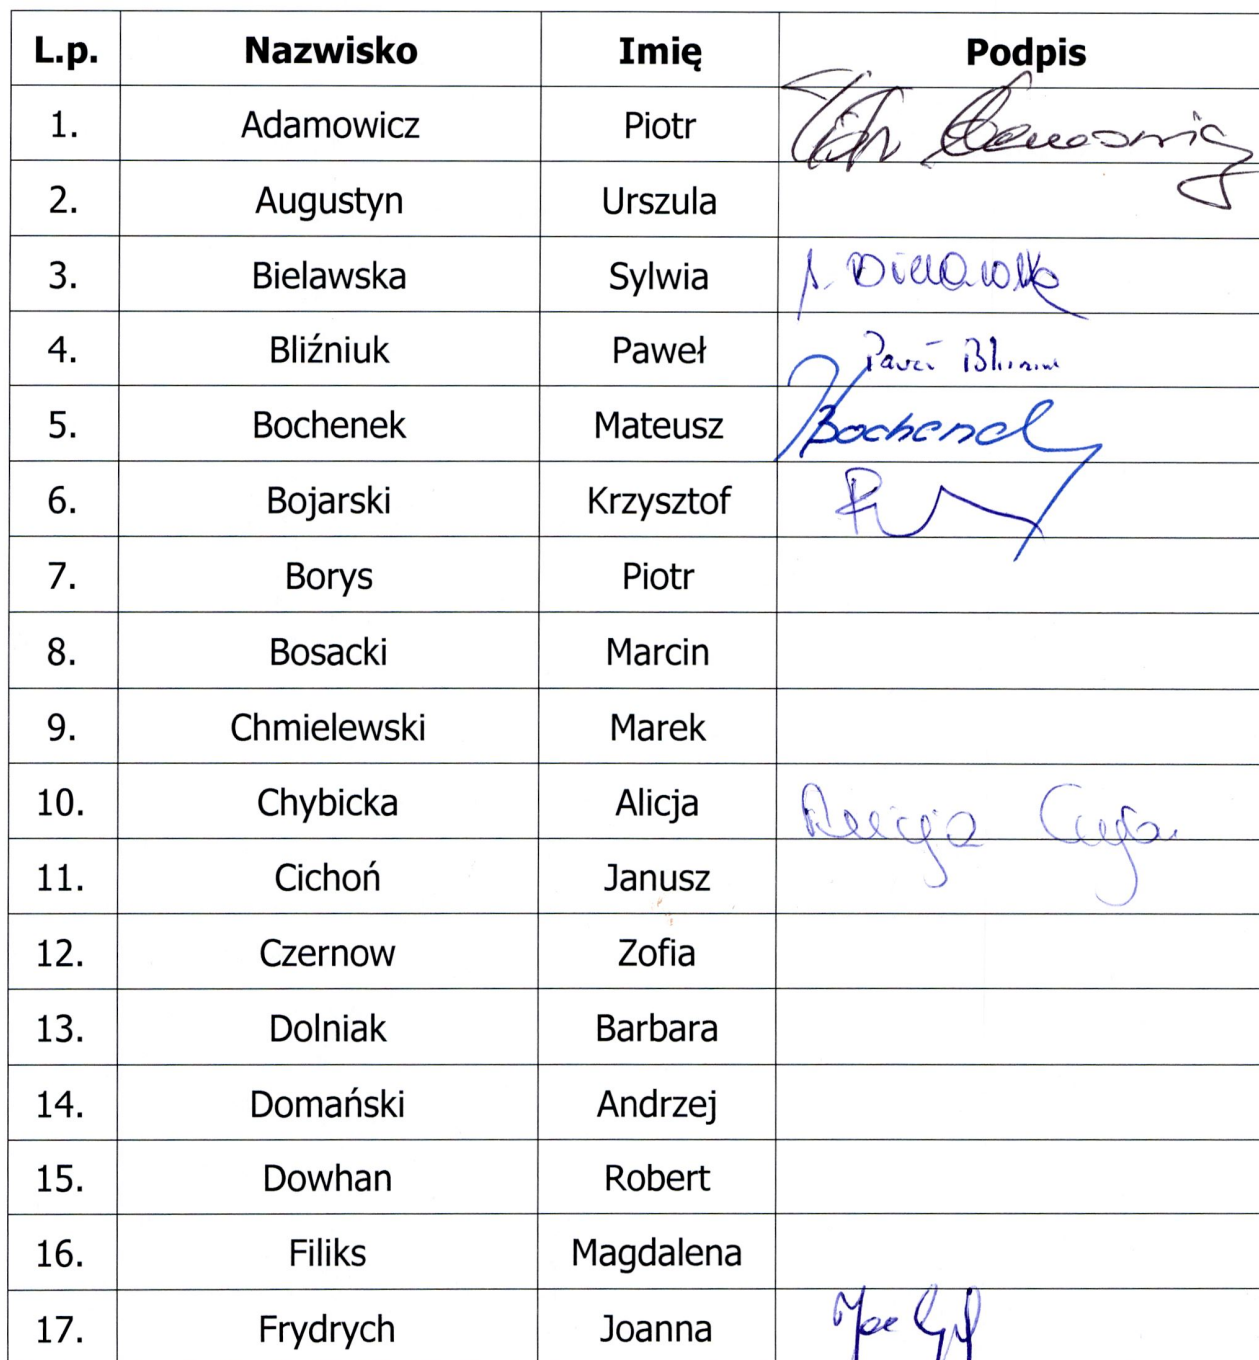 L.p. Nazwisko Imię Podpis
1. Adamowicz Piotr
2. Augustyn Urszula
3. Bielawska Sylwia
4. Bliźniuk Paweł Paweł
5. Bochenek Mateusz Bochenek
6. Bojarski Krzysztof
7. Borys Piotr
8. Bosacki Marcin
9. Chmielewski Marek
10. Chybicka Alicja Alicja
11. Cichoń Janusz
12. Czernow Zofia
13. Dolniak Barbara
14. Domański Andrzej
15. Dowhan Robert
16. Filiks Magdalena
17. Frydrych Joanna